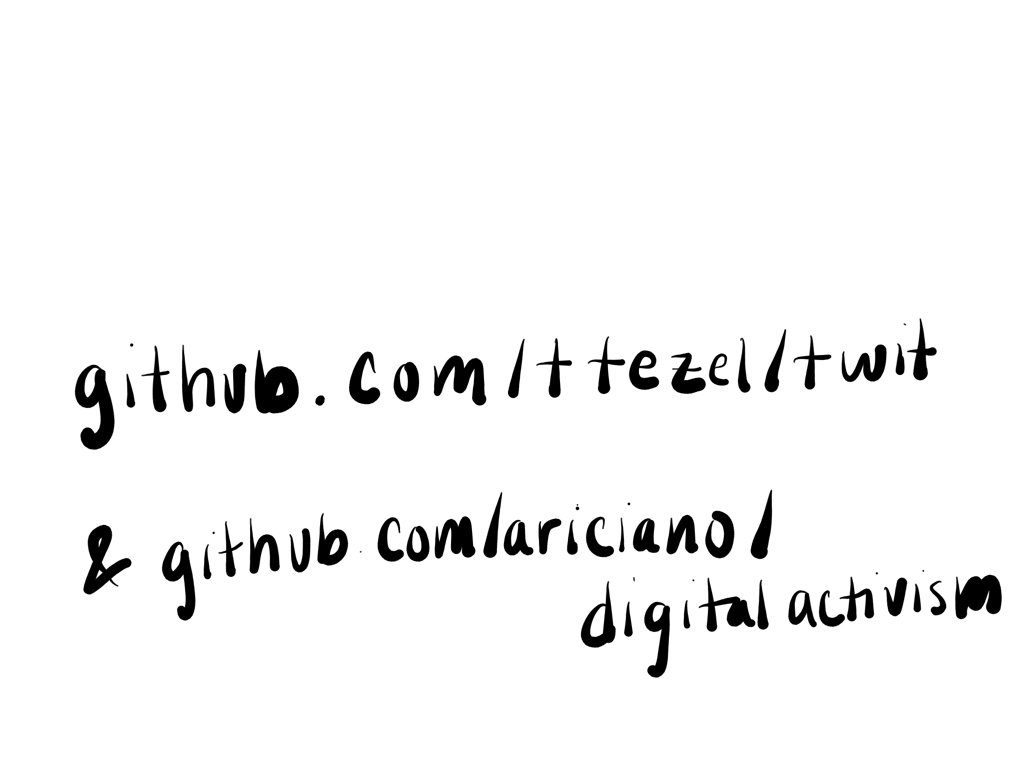 github.com/ttezel/twit
& github.com/ariciano/
digitalactivism